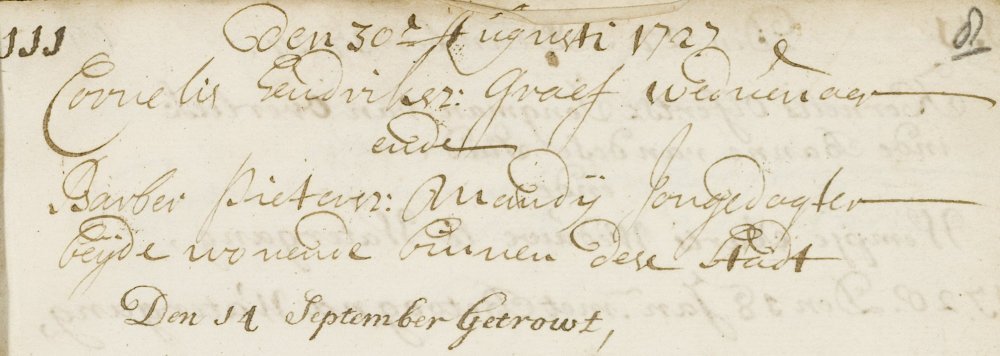 111 Den 30e Augusti 1727 8
Cornelis Hendriksz: Graef weduenaer
ende
Barber Pietersz: Mandij Jongedogter
beijde wonende binnen dese Stadt
Den 14 September Getrowt,